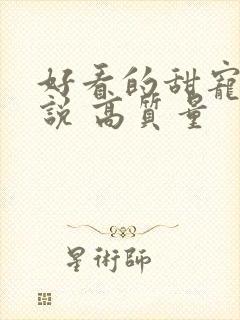 好看的甜寵
說 高質量
星術師